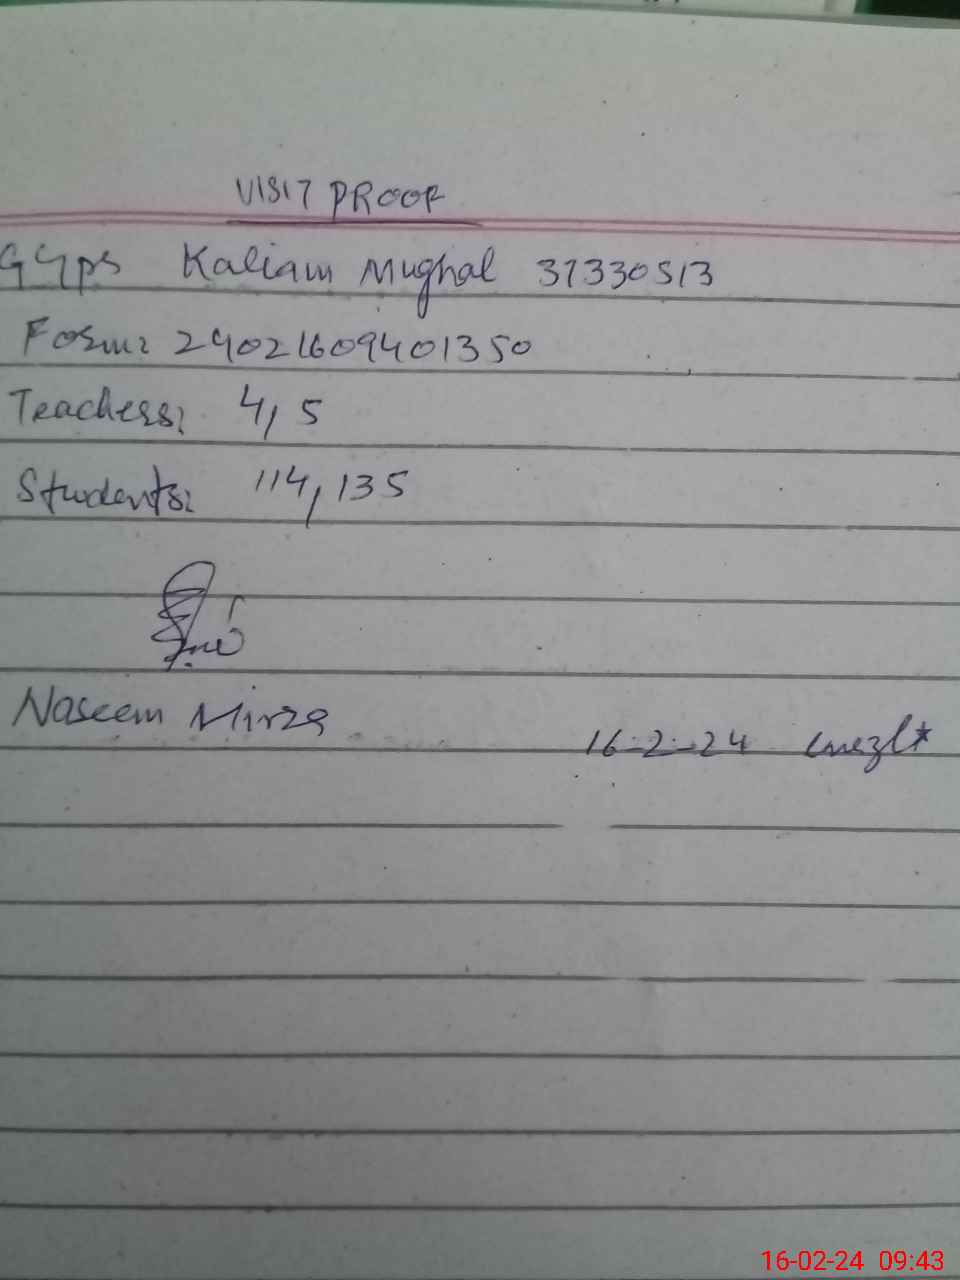 VISIT PROOF
GGPS Kaliam Mughal 37330513
Form: 240216094401350
Teachers: 4, 5
Students: 114, 135
Naseem Mirza
16-2-24
16-02-24 09:43